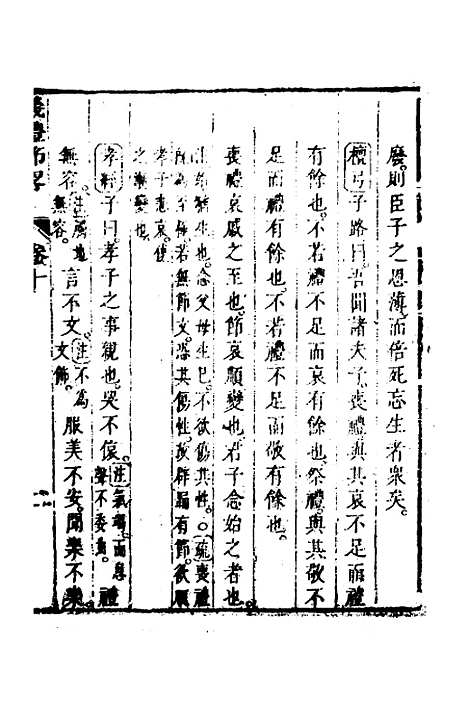 廢則臣子之恩薄而倍死忘生者眾矣
檀弓子路曰吾聞諸夫子喪禮與其哀不足而禮
有餘也不若禮不足而哀有餘也祭禮與其敬不
足而禮有餘也不若禮不足而敬有餘也
喪禮哀戚之至也節哀順變也君子念始之者也
注始猶生也念父母生已不欲傷其性○疏喪禮
哀為至極若無節文恐其傷性故辟踊有節欲順
孝子悲哀使
之漸變也
孝經子曰孝子之事親也哭不偯注氣竭而息聲不委曲禮
無容注觸地無容言不文注不為文飾服美不安聞樂不樂
儀禮節畧
卷十